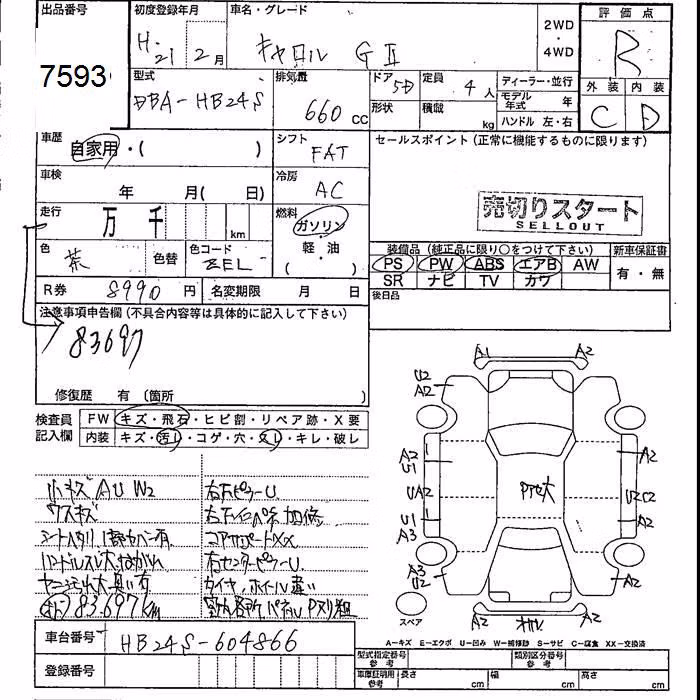 出品番号 初度登録年月 車名・グレード 2WD・4WD 評価点
7593 H.21 2月 キャロル GⅡ R
型式 排気量 ドア 5D 定員 4人 ディーラー・並行 外装 内装
DBA-HB24S 660cc 形状 積載 kg モデル年式 年 C D
ハンドル 左・右
車歴 シフト セールスポイント (正常に機能するものに限ります)
自家用・( ) FAT
車検 冷房
年 月( 日) AC
走行 万 千 km 燃料 売切りスタート
ガソリン SELLOUT
色 茶 色替 色コード ZEL 軽・油 ( )
装備品 (純正品に限り○をつけて下さい) 新車保証書
PS PW ABS エアB AW 有・無
SR ナビ TV カワ
R券 8990円 名変期限 月 日 後日品
注意事項申告欄 (不具合内容等は具体的に記入して下さい)
83697
修復歴 有 (箇所
検査員記入欄 FW キズ・飛石・ヒビ割・リペア跡・X要
内装 キズ・汚れ・コゲ・穴・スレ・キレ・破レ
小キズ AU W2 右
ウスキズ 右 加修
シートヘタリ 有 コアサポートXX
ハンドルスレ大 右センターピラーU
ヤニ汚れ大 臭い有 タイヤ、ホイール違い
83,697km
A1 A2
U2
A2
A2
U1
A2
UA2 U2 C2
U1
A3
A2
A3
U2
A2
A2 A2
スペア
A-キズ E-エクボ U-凹み W-補修跡 S-サビ C-腐食 XX-交換済
車台番号 HB24S-604866
登録番号
型式指定番号 参考 類別区分番号 参考
車庫証明用 参考 長さ cm 幅 cm 高さ cm